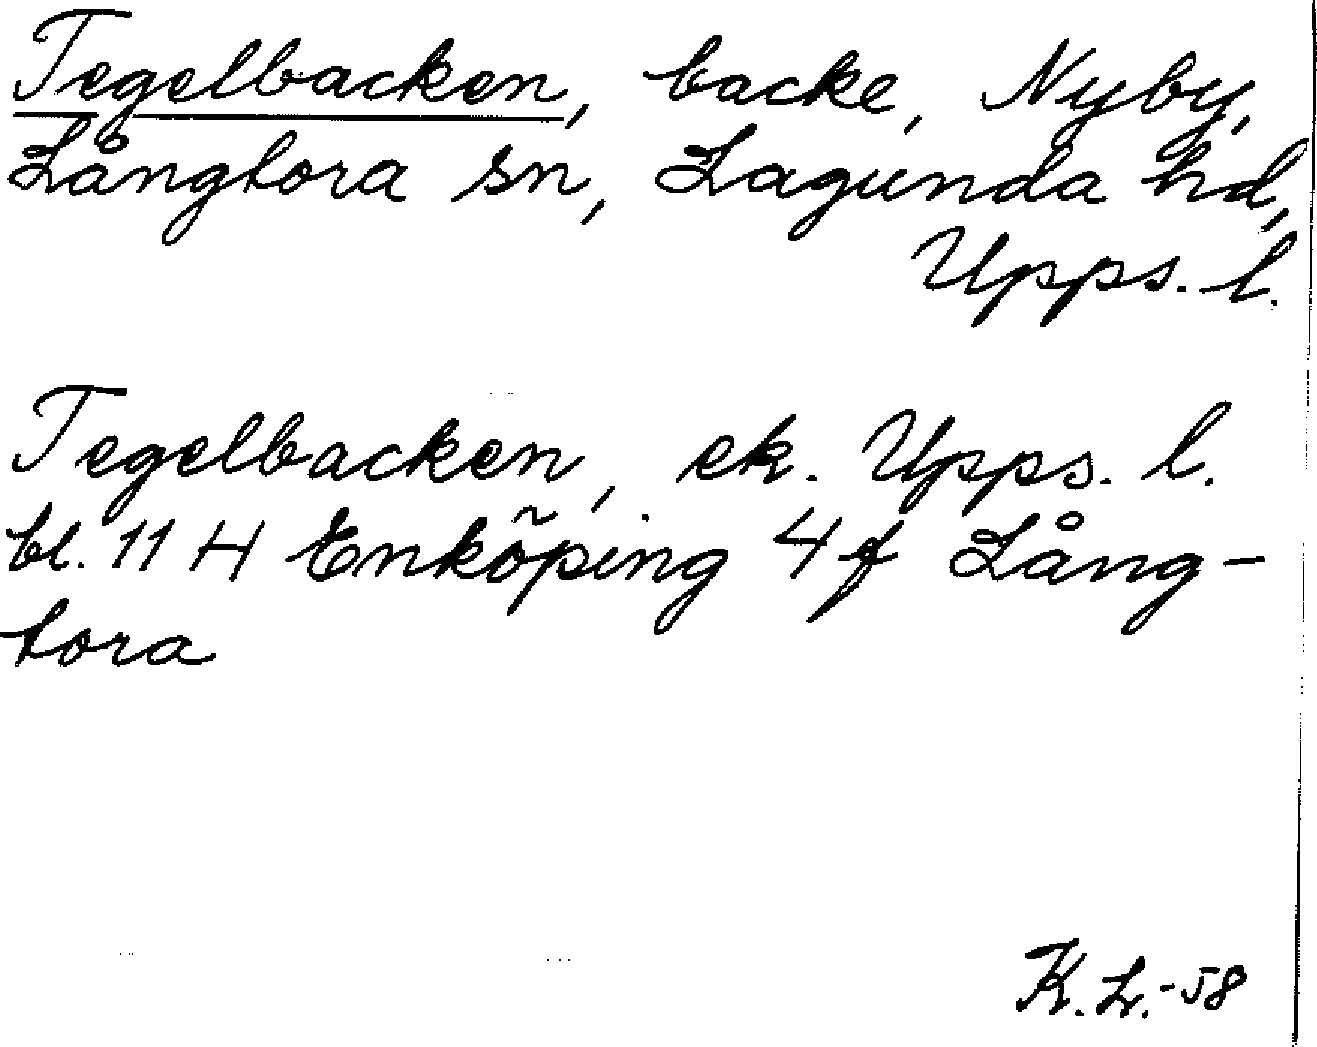 Tegelbacken, backe, Nyby,
Långtora sn, Lagunda hd,
Upps. l.
Tegelbacken, ek. Upps. l.
bl. 11 H Enköping 4 f Lång-
tora
K.L.-58